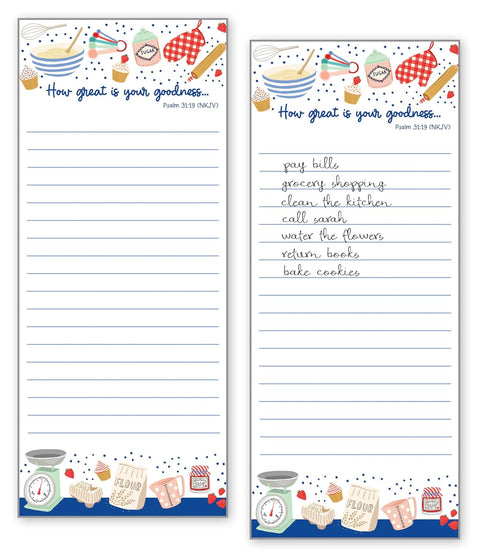 SUGAR
How great is your goodness...
Psalm 31:19 (NKJV)
FLOUR
SUGAR
How great is your goodness...
Psalm 31:19 (NKJV)
pay bills
grocery shopping
clean the kitchen
call sarah
water the flowers
return books
bake cookies
FLOUR